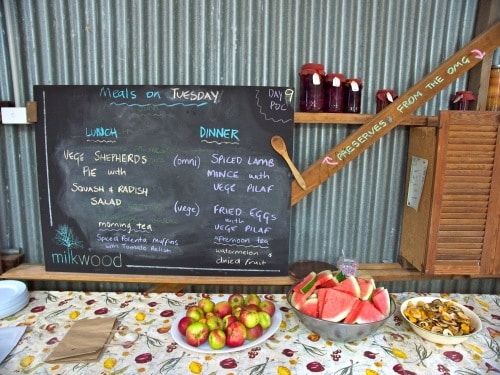 Meals on TUESDAY
DAY 9
PDC
LUNCH
VEGE SHEPHERDS
PIE with
SQUASH & RADISH
SALAD
morning tea
Spiced Polenta muffins
with Tomato Relish
milkwood
DINNER
(omni) SPICED LAMB
MINCE with
VEGE PILAF
(vege) FRIED EGGS
with
VEGE PILAF
afternoon tea
watermelon &
dried fruit
PRESERVES FROM THE OMG